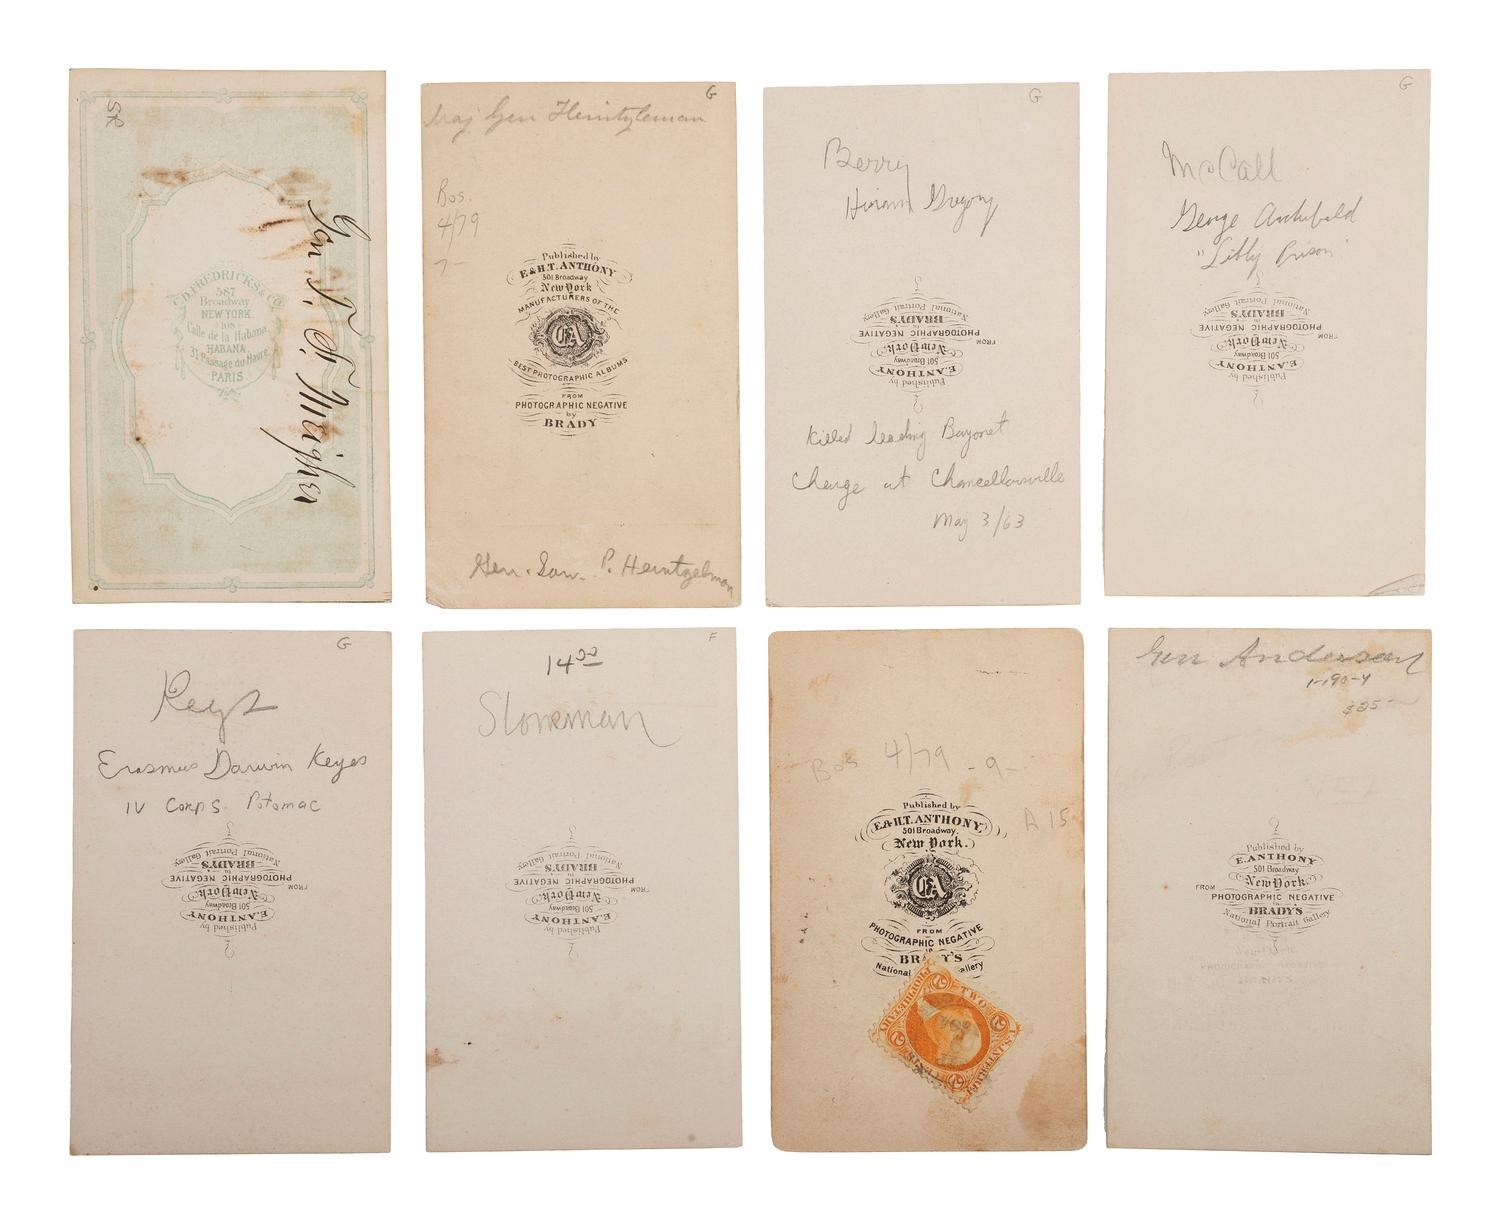 SR
C.D. FREDRICKS & CO.
587
Broadway
NEW YORK.
108
Calle de la Habana
HABANA.
31 Passage du Havre
PARIS.
Gen T. F. Meigher
G
Maj Gen Heintzleman
Bos.
4/79
7-
Published by
E. & H.T. ANTHONY
501 Broadway
New York
MANUFACTURERS OF THE
BEST PHOTOGRAPHIC ALBUMS
FROM
PHOTOGRAPHIC NEGATIVE
by
BRADY
Gen. Sam. P. Heintzelman
G
Berry
Hiram Gregory
Published by
E. ANTHONY
501 Broadway
New York.
FROM
PHOTOGRAPHIC NEGATIVE
in
BRADY'S
National Portrait Gallery
Killed leading Bayonet
Charge at Chancellorsville
May 3/63
G
McCall
George Archibald
"Libby Prison"
Published by
E. ANTHONY
501 Broadway
New York.
FROM
PHOTOGRAPHIC NEGATIVE
in
BRADY'S
National Portrait Gallery
G
Keyes
Erasmus Darwin Keyes
IV Corps Potomac
Published by
E. ANTHONY
501 Broadway
New York.
FROM
PHOTOGRAPHIC NEGATIVE
in
BRADY'S
National Portrait Gallery
F
14 00
Stoneman
Published by
E. ANTHONY
501 Broadway
New York.
FROM
PHOTOGRAPHIC NEGATIVE
in
BRADY'S
National Portrait Gallery
Bos 4/79 -9-
A 15
Published by
E. & H.T. ANTHONY,
501 Broadway.
New York.
FROM
PHOTOGRAPHIC NEGATIVE
in
BRADY'S
National
allery
PROPRIETARY
TWO
CENTS
U.S. INTER. REV.
2
2
2
2
Gen Anderson
1-190-4
$25-
Published by
E. ANTHONY
501 Broadway
New York.
FROM
PHOTOGRAPHIC NEGATIVE
in
BRADY'S
National Portrait Gallery